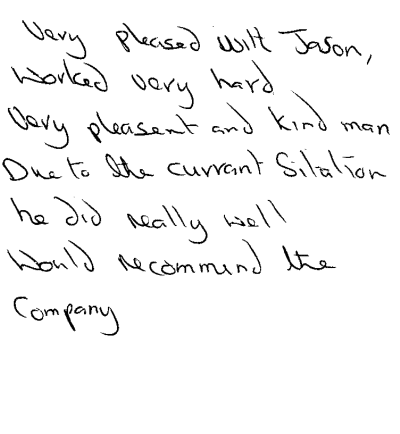 Very pleased with Jason,
Worked very hard
Very pleasent and kind man
Due to the currant Sitation
he did really well
Would recommend the
Company